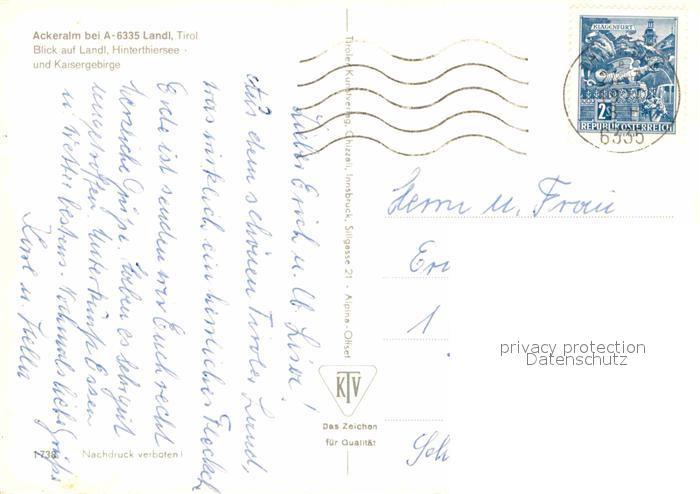 Ackeralm bei A-6335 Landl, Tirol
Blick auf Landl, Hinterthiersee -
und Kaisergebirge
Lieber Erich u. lb. Liesel!
Aus dem schönen Tiroler Land,
was wirklich ein herrliches Flecken
Erde ist senden wir Euch recht
herzliche Grüße. Haben es sehr gut
angetroffen. Unterkunft Essen
u. Wetter bestens. Nochmals liebe Grüße
u.
1738 Nachdruck verboten!
Tiroler Kunstverlag Chizzali, Innsbruck, Sillgasse 21 - Alpina-Offset
KTV
Das Zeichen
für Qualität
KLAGENFURT
2S
REPUBLIK ÖSTERREICH
6335
Herrn u. Frau
Eri
1
Sch
privacy protection
Datenschutz